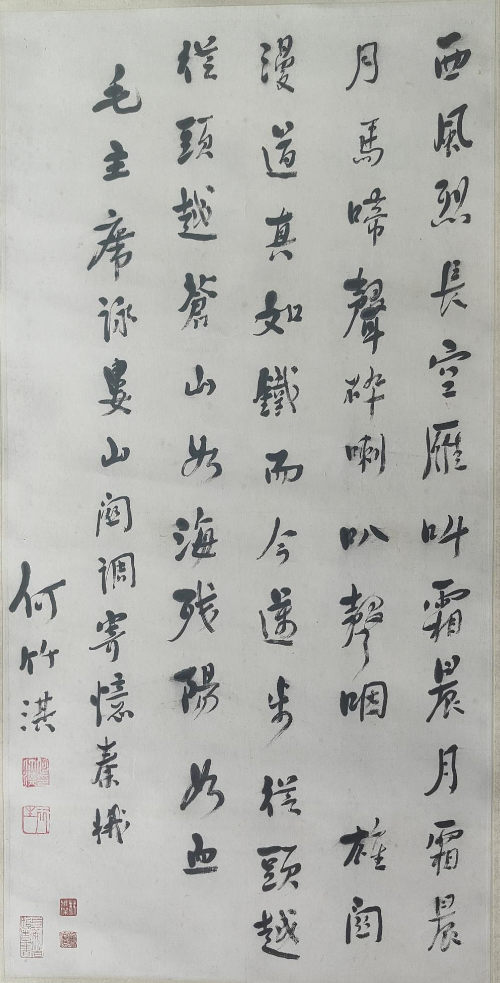 西風烈長空雁叫霜晨月霜晨
月馬啼聲碎喇叭聲咽雄関
漫道真如鐵而今邁步從頭越
從頭越蒼山如海残陽如血
毛主席詠婁山関調寄憶秦娥
何竹淇